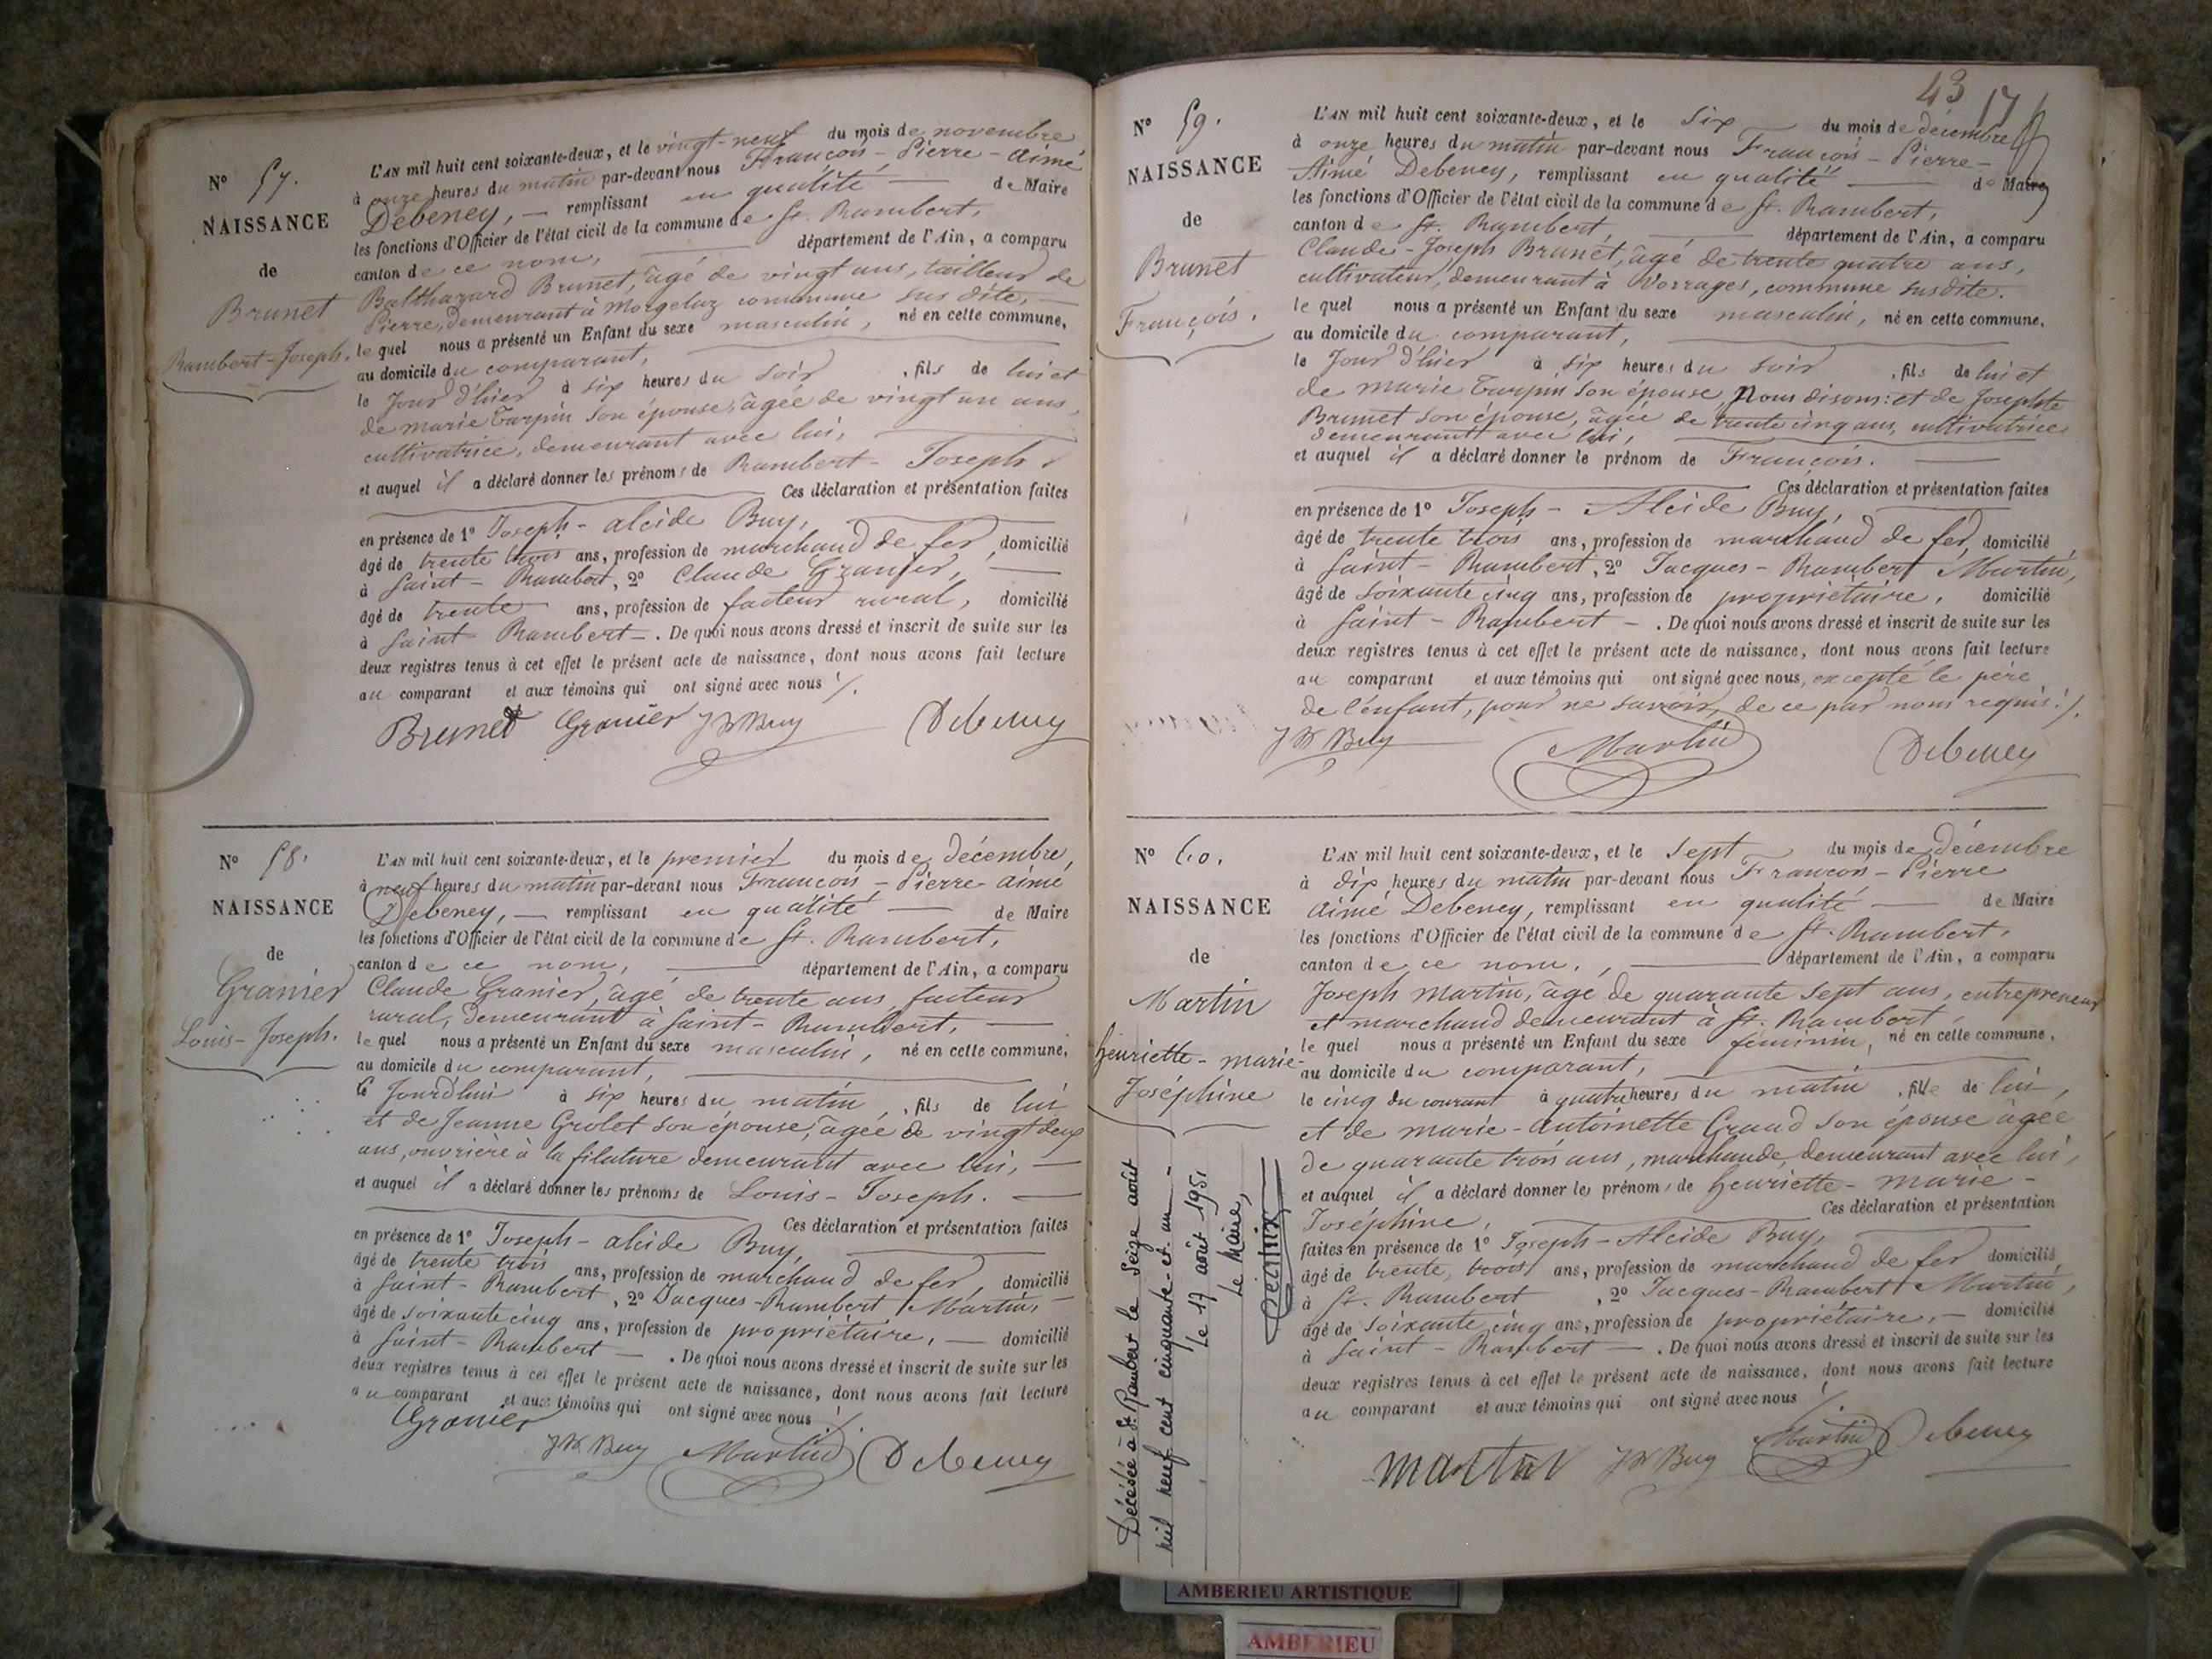 N° 57.
NAISSANCE
de
Brunet
Rambert-Joseph.
L'AN mil huit cent soixante-deux, et le vingt-neuf du mois de novembre
à onze heures du matin par-devant nous François-Pierre-Aimé
Debeney, — remplissant en qualité — de Maire
les fonctions d'Officier de l'état civil de la commune de St. Rambert,
canton de ce nom, département de l'Ain, a comparu
Balthazard Brunet, âgé de vingt ans, tailleur de
Pierre, demeurant à Morgelaz commune sus dite, —
le quel nous a présenté un Enfant du sexe masculin, né en cette commune,
au domicile du comparant,
le Jour d'hier à six heures du soir, fils de lui et
de marie Turpin son épouse, âgée de vingt un ans,
cultivatrice, demeurant avec lui,
et auquel il a déclaré donner les prénoms de Rambert-Joseph.
Ces déclaration et présentation faites
en présence de 1° Joseph-alcide Buy,
âgé de trente trois ans, profession de marchand de fer, domicilié
à Saint-Rambert, 2° Claude Granier, —
âgé de trente ans, profession de facteur rural, domicilié
à Saint-Rambert —. De quoi nous avons dressé et inscrit de suite sur les
deux registres tenus à cet effet le présent acte de naissance, dont nous avons fait lecture
au comparant et aux témoins qui ont signé avec nous ./.
Brunet Granier Buy Debeney
N° 58.
NAISSANCE
de
Granier
Louis-Joseph.
L'AN mil huit cent soixante-deux, et le premier du mois de décembre,
à neuf heures du matin par-devant nous François-Pierre-aimé
Debeney, — remplissant en qualité — de Maire
les fonctions d'Officier de l'état civil de la commune de St. Rambert,
canton de ce nom, — département de l'Ain, a comparu
Claude Granier, âgé de trente ans, facteur
rural, demeurant à Saint-Rambert, —
le quel nous a présenté un Enfant du sexe masculin, né en cette commune,
au domicile du comparant,
le Jourd'hui à six heures du matin, fils de lui
et de Jeanne Grolet son épouse, âgée de vingt deux
ans, ouvrière à la filature demeurant avec lui, —
et auquel il a déclaré donner les prénoms de Louis-Joseph. —
Ces déclaration et présentation faites
en présence de 1° Joseph-alcide Buy,
âgé de trente trois ans, profession de marchand de fer, domicilié
à Saint-Rambert, 2° Jacques-Rambert Martin, —
âgé de soixante cinq ans, profession de propriétaire, — domicilié
à Saint-Rambert —. De quoi nous avons dressé et inscrit de suite sur les
deux registres tenus à cet effet le présent acte de naissance, dont nous avons fait lecture
au comparant et aux témoins qui ont signé avec nous ./.
Granier
Buy Martin Debeney
43
N° 59.
NAISSANCE
de
Brunet
François.
L'AN mil huit cent soixante-deux, et le six du mois de décembre
à onze heures du matin par-devant nous François-Pierre-
Aimé Debeney, remplissant en qualité — de Maire
les fonctions d'Officier de l'état civil de la commune de St. Rambert,
canton de St. Rambert, — département de l'Ain, a comparu
Claude-Joseph Brunet, âgé de trente quatre ans,
cultivateur, demeurant à Vorrages, commune susdite.
le quel nous a présenté un Enfant du sexe masculin, né en cette commune,
au domicile du comparant,
le Jour d'hier à six heures du soir, fils de lui et
de marie Turpin son épouse Nous disons: et de Josephte
Brunet son épouse, âgée de trente cinq ans, cultivatrice
demeurant avec lui,
et auquel il a déclaré donner le prénom de François. —
Ces déclaration et présentation faites
en présence de 1° Joseph-Alcide Buy,
âgé de trente trois ans, profession de marchand de fer, domicilié
à Saint-Rambert, 2° Jacques-Rambert Martin,
âgé de soixante cinq ans, profession de propriétaire, domicilié
à Saint-Rambert —. De quoi nous avons dressé et inscrit de suite sur les
deux registres tenus à cet effet le présent acte de naissance, dont nous avons fait lecture
au comparant et aux témoins qui ont signé avec nous, excepté le père
de l'enfant, pour ne savoir, de ce par nous requis ./.
Buy Martin Debeney
N° 60.
NAISSANCE
de
Martin
henriette-marie-
Joséphine
L'AN mil huit cent soixante-deux, et le sept du mois de décembre
à dix heures du matin par-devant nous François-Pierre
Aimé Debeney, remplissant en qualité — de Maire
les fonctions d'Officier de l'état civil de la commune de St. Rambert,
canton de ce nom, — département de l'Ain, a comparu
Joseph Martin, âgé de quarante sept ans, entrepreneur
et marchand demeurant à St. Rambert,
le quel nous a présenté un Enfant du sexe féminin, né en cette commune,
au domicile du comparant,
le cinq du courant à quatre heures du matin, fille de lui,
et de marie-Antoinette Graud son épouse âgée
de quarante trois ans, marchande, demeurant avec lui,
et auquel il a déclaré donner les prénoms de henriette-marie-
Joséphine, Ces déclaration et présentation
faites en présence de 1° Joseph-Alcide Buy,
âgé de trente trois ans, profession de marchand de fer domicilié
à St. Rambert, 2° Jacques-Rambert Martin,
âgé de soixante cinq ans, profession de propriétaire, — domicilié
à Saint-Rambert —. De quoi nous avons dressé et inscrit de suite sur les
deux registres tenus à cet effet le présent acte de naissance, dont nous avons fait lecture
au comparant et aux témoins qui ont signé avec nous ./.
martin Buy Martin Debeney
Décédée à St Rambert le seize août
mil neuf cent cinquante-et-un —
Le 17 août 1951
Le Maire,
AMBERIEU ARTISTIQUE
AMBERIEU